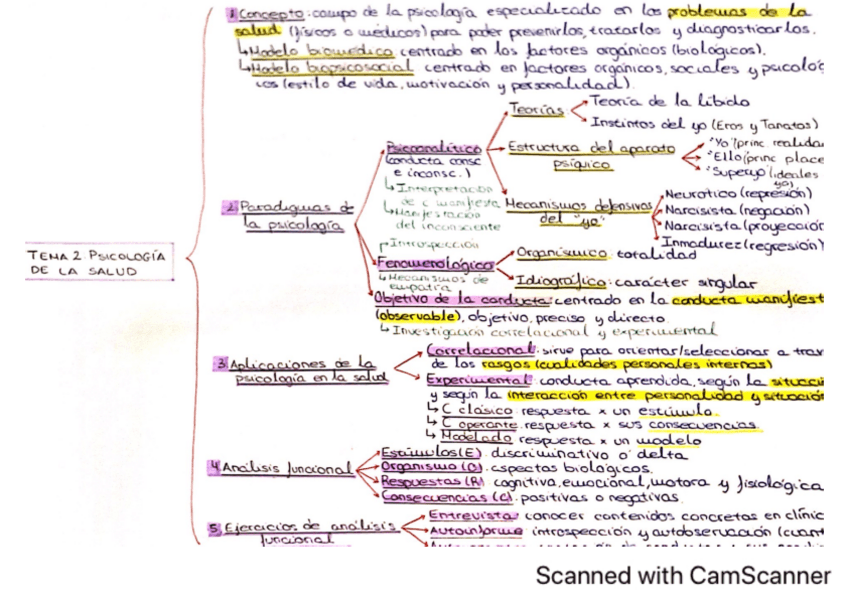 1 Concepto: campo de la psicología especializado en los problemas de la
salud (físicos o médicos) para poder prevenirlos, tratarlos y diagnosticarlos.
↳ Modelo biomédico centrado en los factores orgánicos (biológicos).
↳ Modelo biopsicosocial centrado en factores orgánicos, sociales y psicológ
icos (estilo de vida, motivación y personalidad).
TEMA 2. PSICOLOGÍA
DE LA SALUD
2. Paradigmas de
la psicología
Psicoanalítico
(conducta consc
e inconsc.)
↳ Interpretación
de c manifiesta
↳ Manifestación
del inconsciente
Teorías
Teoría de la libido
Instintos del yo (Eros y Tanatos)
Estructura del aparato
psíquico
"Yo" (princ realida
"Ello" (princ place
"Superyo" (ideales
yo)
Mecanismos defensivos
del "yo"
Neurótico (represión)
Narcisista (negación)
Narcisista (proyección
Inmadurez (regresión)
Introspección
Fenomerológico
↳ Mecanismos de
empatía
Organísmico: totalidad
Idiográfico: carácter singular
Objetivo de la conducta: centrado en la conducta manifiest
(observable), objetivo, preciso y directo
↳ Investigación correlacional y experimental
3. Aplicaciones de la
psicología en la salud
Correlacional: sirve para orientar/seleccionar a trav
de los rasgos (cualidades personales internas)
Experimental: conducta aprendida, según la situaci
y según la interacción entre personalidad y situación
↳ C clásico: respuesta x un estímulo.
↳ C operante: respuesta x sus consecuencias.
↳ Modelado: respuesta x un modelo
4 Análisis funcional
Estímulos (E): discriminativo o delta
Organismo (O): aspectos biológicos.
Respuestas (R): cognitiva, emocional, motora y fisiológica
Consecuencias (C): positivas o negativas.
5. Ejercicios de análisis
funcional
Entrevista: conocer contenidos concretos en clínic
Autoinforme: introspección y autobservación (cuant
Scanned with CamScanner